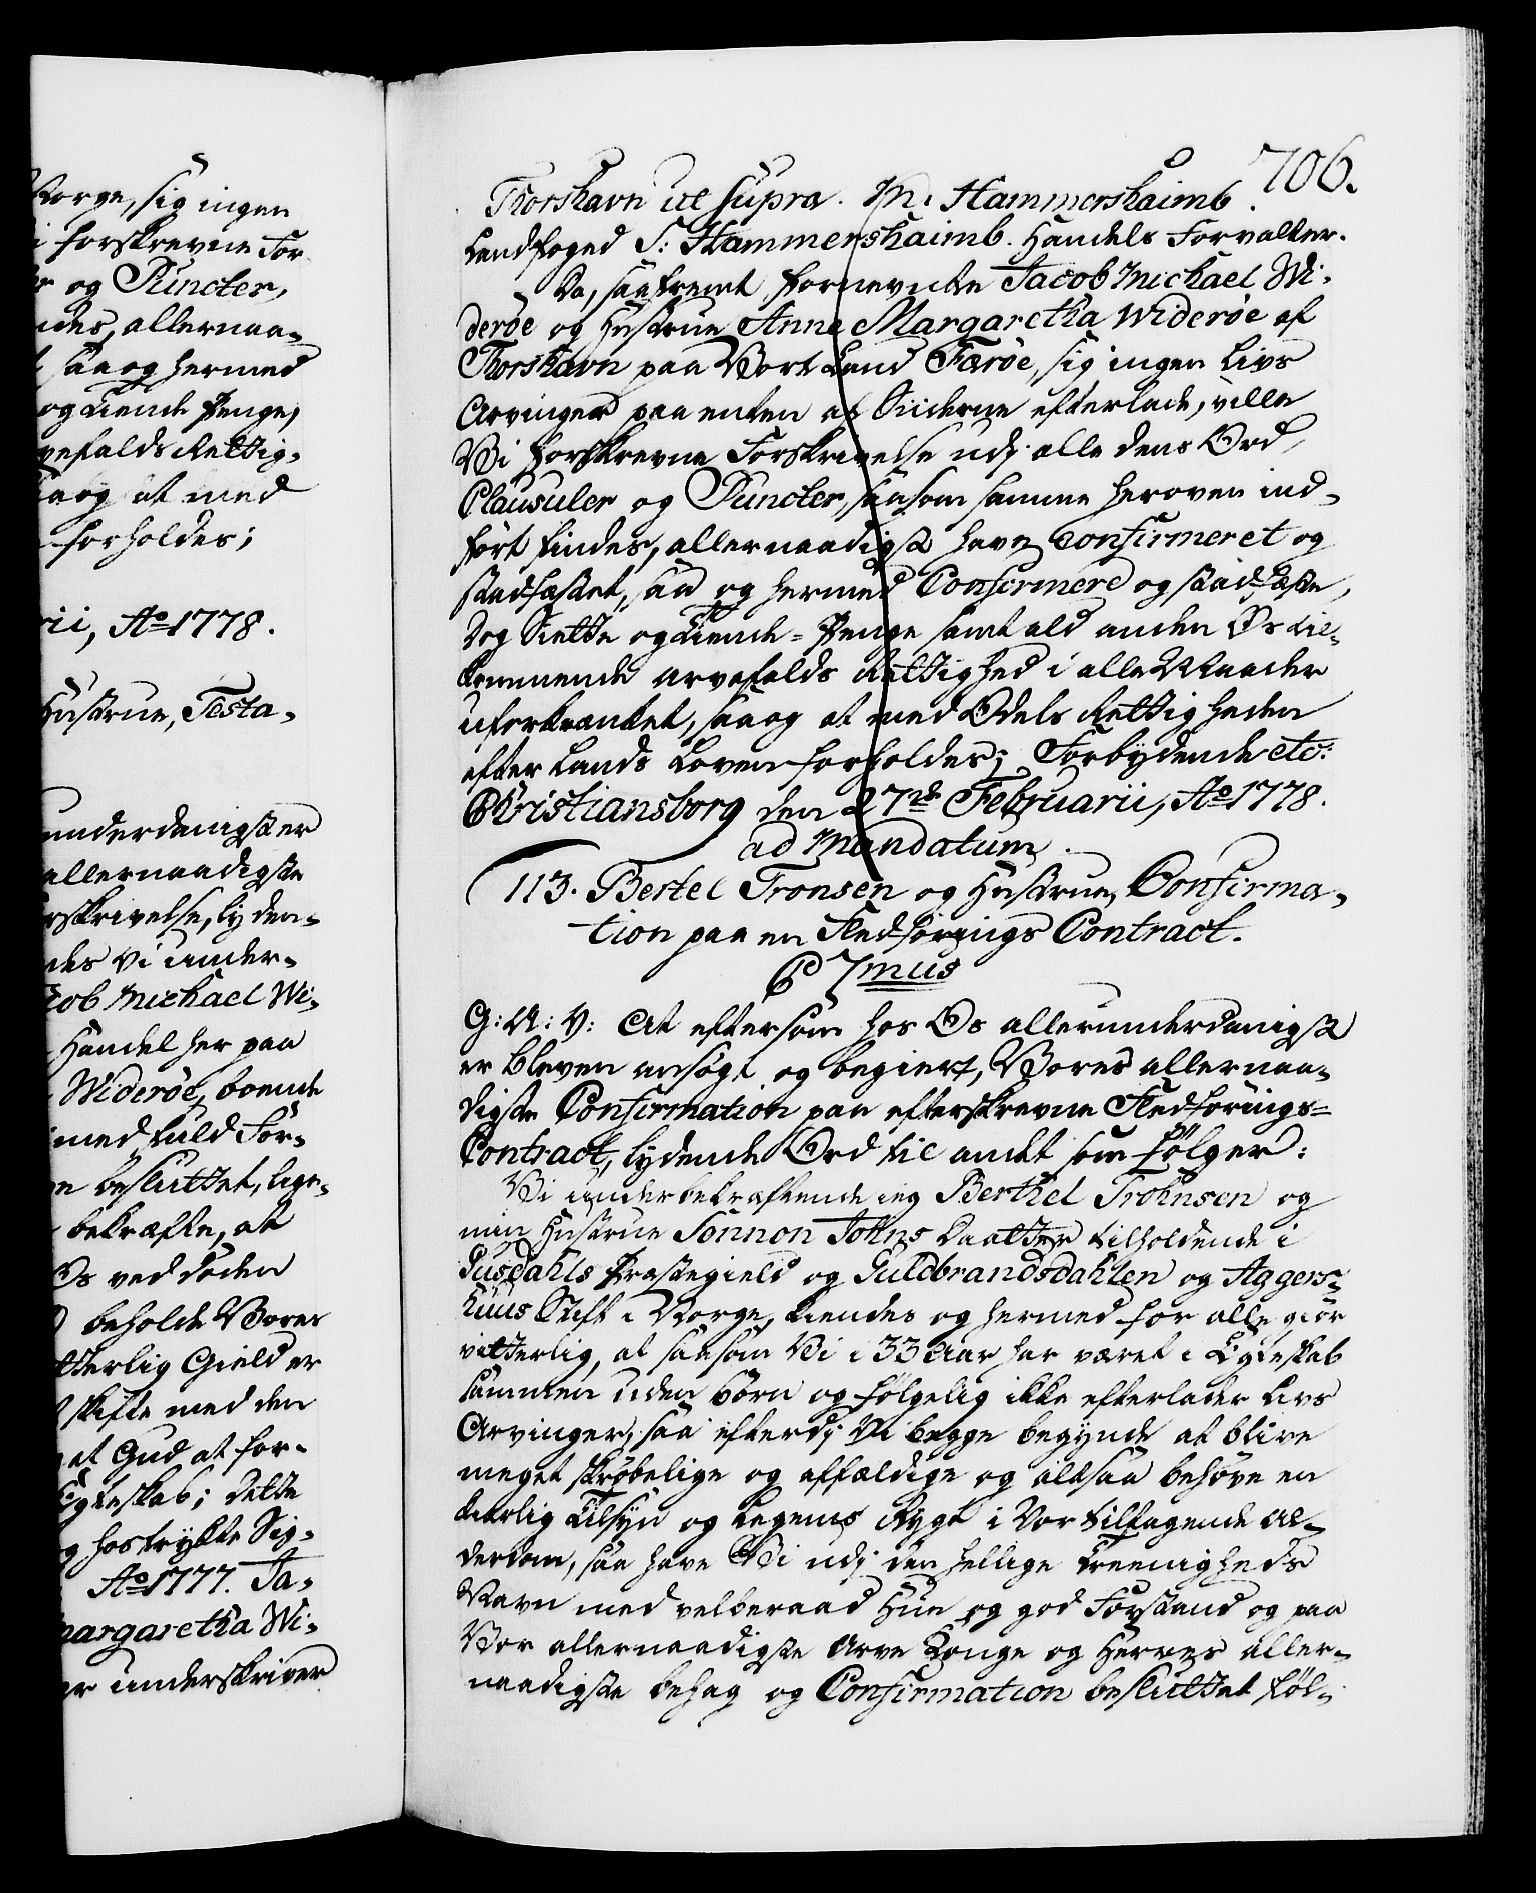 Norge, sig ingen
i forskrevne For-
er og Puncter,
ndes, allernaa-
t, saa og hermed
og Tiende Penge,
vefalds Rettig-
saa og at med
forholdes;
rii, Ao 1778.
Hustrue, Testa-
underdanigst er
allernaadigste
rskrivelse, lyden-
des Vi under-
cob Michael Wi-
Handel her paa
Widerøe, boende
med fuld For-
n besluttet, lige-
bekræfte, at
Os ved døden
beholde Vores
tterlig Gield er
skifte med den
at Gud at for-
Egteskab; dette
g hostrykte Sig-
Ao 1777. Ja-
Margaretha Wi-
er underskriver
706.
Thorshavn ut supra. M. Hammershaimb
Landfoged J: Hammershaimb. Handels Forvalter.
Da, saafremt fornevnte Jacob Michael Wi-
derøe og Hustrue Anne Margaretha Widerøe af
Thorshavn paa Vort Land Færøe, sig ingen Livs
Arvinger paa enten af Siiderne efterlade, ville
Vi forskrevne Forskrivelse udj alle dens Ord,
Clausuler og Puncter, saasom samme heroven ind-
ført findes, allernaadigst have confirmeret og
stadfæstet, saa og hermed Confirmere og stadfæste,
Dog Siette og Tiende-Penge samt ald anden Os til-
kommende arvefalds Rettighed i alle Maader
uforkrænket, saa og at med Odels Rettigheden
efter Lands Loven forholdes; Forbydende etc:
Christiansborg den 27de Februarii, Ao 1778.
ad Mandatum.
113. Bertel Tronsen og Hustrue, Confirma-
tion paa en Fledførings Contract.
C 7mus
G: A: V: At eftersom hos Os allerunderdanigst
er bleven ansøgt og begiert, Vores allernaa-
digste Confirmation paa efterskrevne Fledførings-
Contract, lydende Ord til andet som følger:
Vi underbekræftende ieg Berthel Trohnsen og
min Hustrue Sønnon Johns Daatter tilholdende i
Susdahls Præstegield og Guldbrandsdahlen og Aggers-
huus Stift i Norge, kiendes og hermed for alle giør
vitterlig, at saasom Vi i 33 Aar har været i Egteskab
sammen uden Børn og følgelig ikke efterlader Livs
Arvinger, saa efterdj Vi begge begynde at blive
meget skrøbelige og affældige og altsaa behøve en
kierlig Tilsyn og Legems Rygt i Vor tiltagende Al-
derdom, saa have Vi udj den hellige Treenigheds
Navn med velberaad Hue og god Forstand og paa
Vor allernaadigste Arve Konge og Herres aller-
naadigste behag og Confirmation besluttet føl-